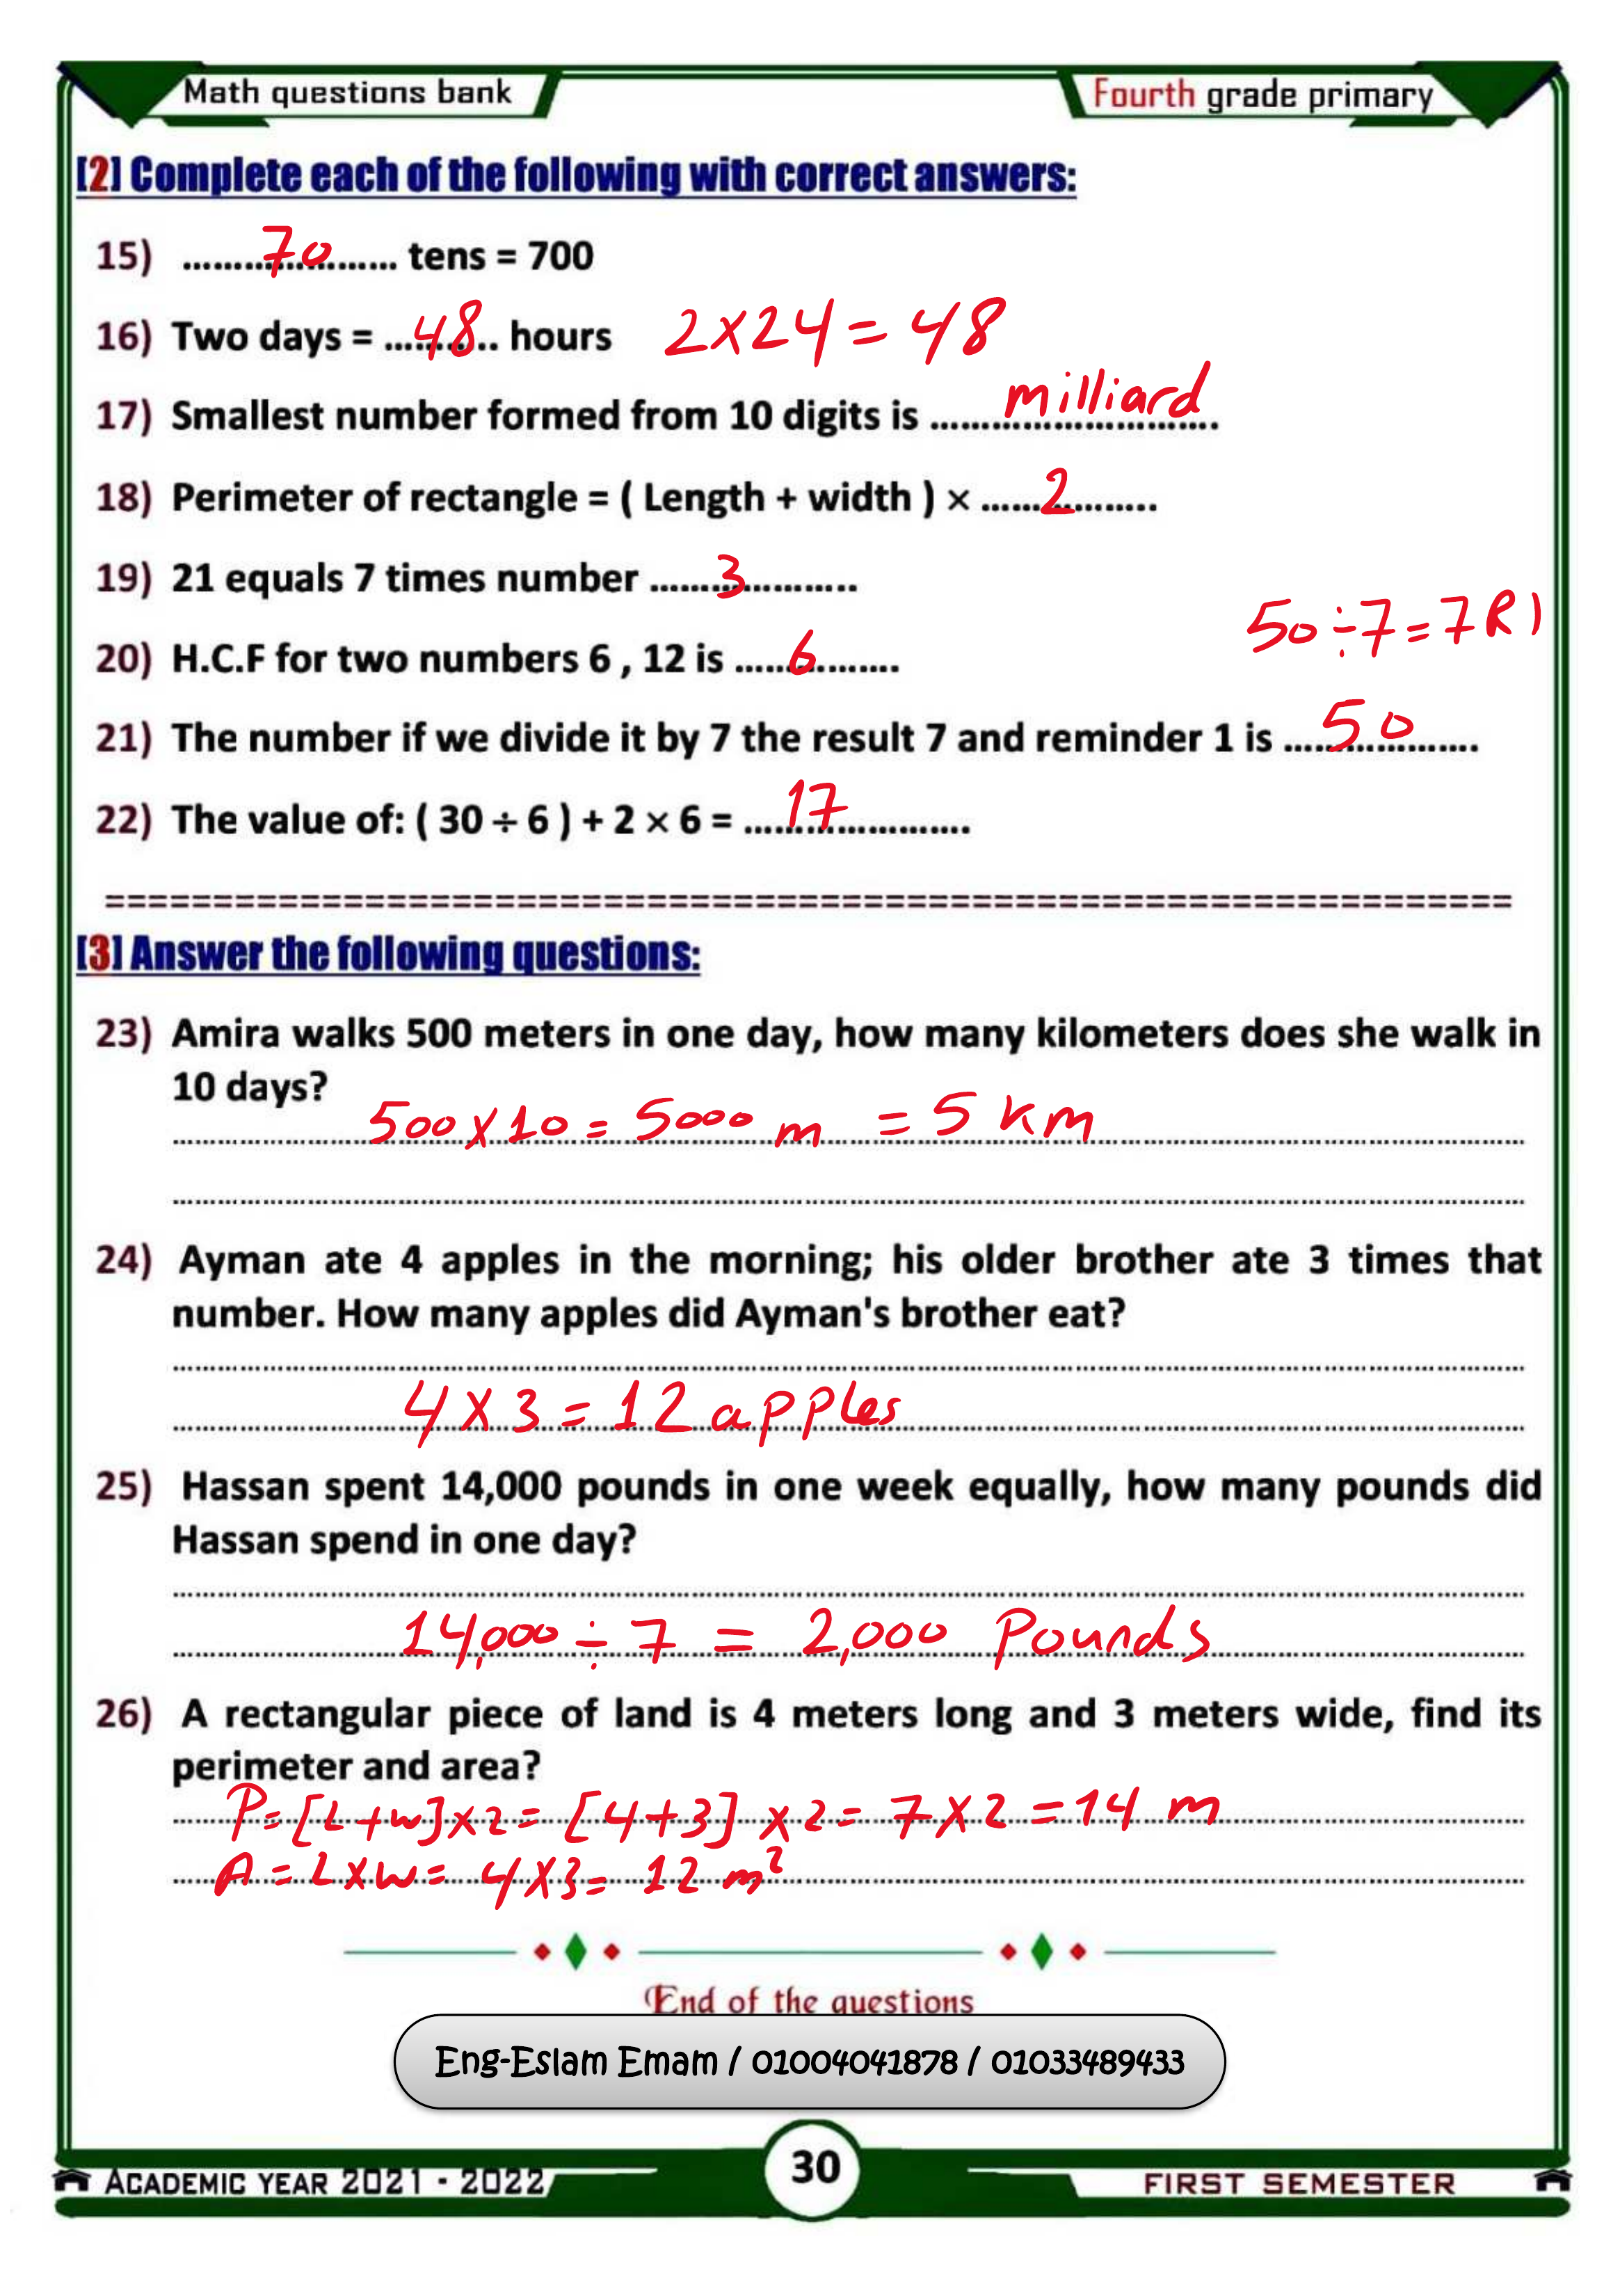 Math questions bank
Fourth grade primary
[2] Complete each of the following with correct answers:
15) ......70...... tens = 700
16) Two days = ...48... hours 2×24=48
17) Smallest number formed from 10 digits is ......milliard......
18) Perimeter of rectangle = ( Length + width ) × ......2......
19) 21 equals 7 times number ......3......
50÷7=7R1
20) H.C.F for two numbers 6 , 12 is ......6......
21) The number if we divide it by 7 the result 7 and reminder 1 is ......50......
22) The value of: ( 30 ÷ 6 ) + 2 × 6 = ......17......
[3] Answer the following questions:
23) Amira walks 500 meters in one day, how many kilometers does she walk in
10 days?
500×10=5000 m = 5 km
24) Ayman ate 4 apples in the morning; his older brother ate 3 times that
number. How many apples did Ayman's brother eat?
4×3=12 apples
25) Hassan spent 14,000 pounds in one week equally, how many pounds did
Hassan spend in one day?
14,000÷7 = 2,000 Pounds
26) A rectangular piece of land is 4 meters long and 3 meters wide, find its
perimeter and area?
P=[L+w]×2=[4+3]×2=7×2=14 m
A=L×w=4×3=12 m²
End of the questions
Eng-Eslam Emam / 01004041878 / 01033489433
30
ACADEMIC YEAR 2021 - 2022
FIRST SEMESTER